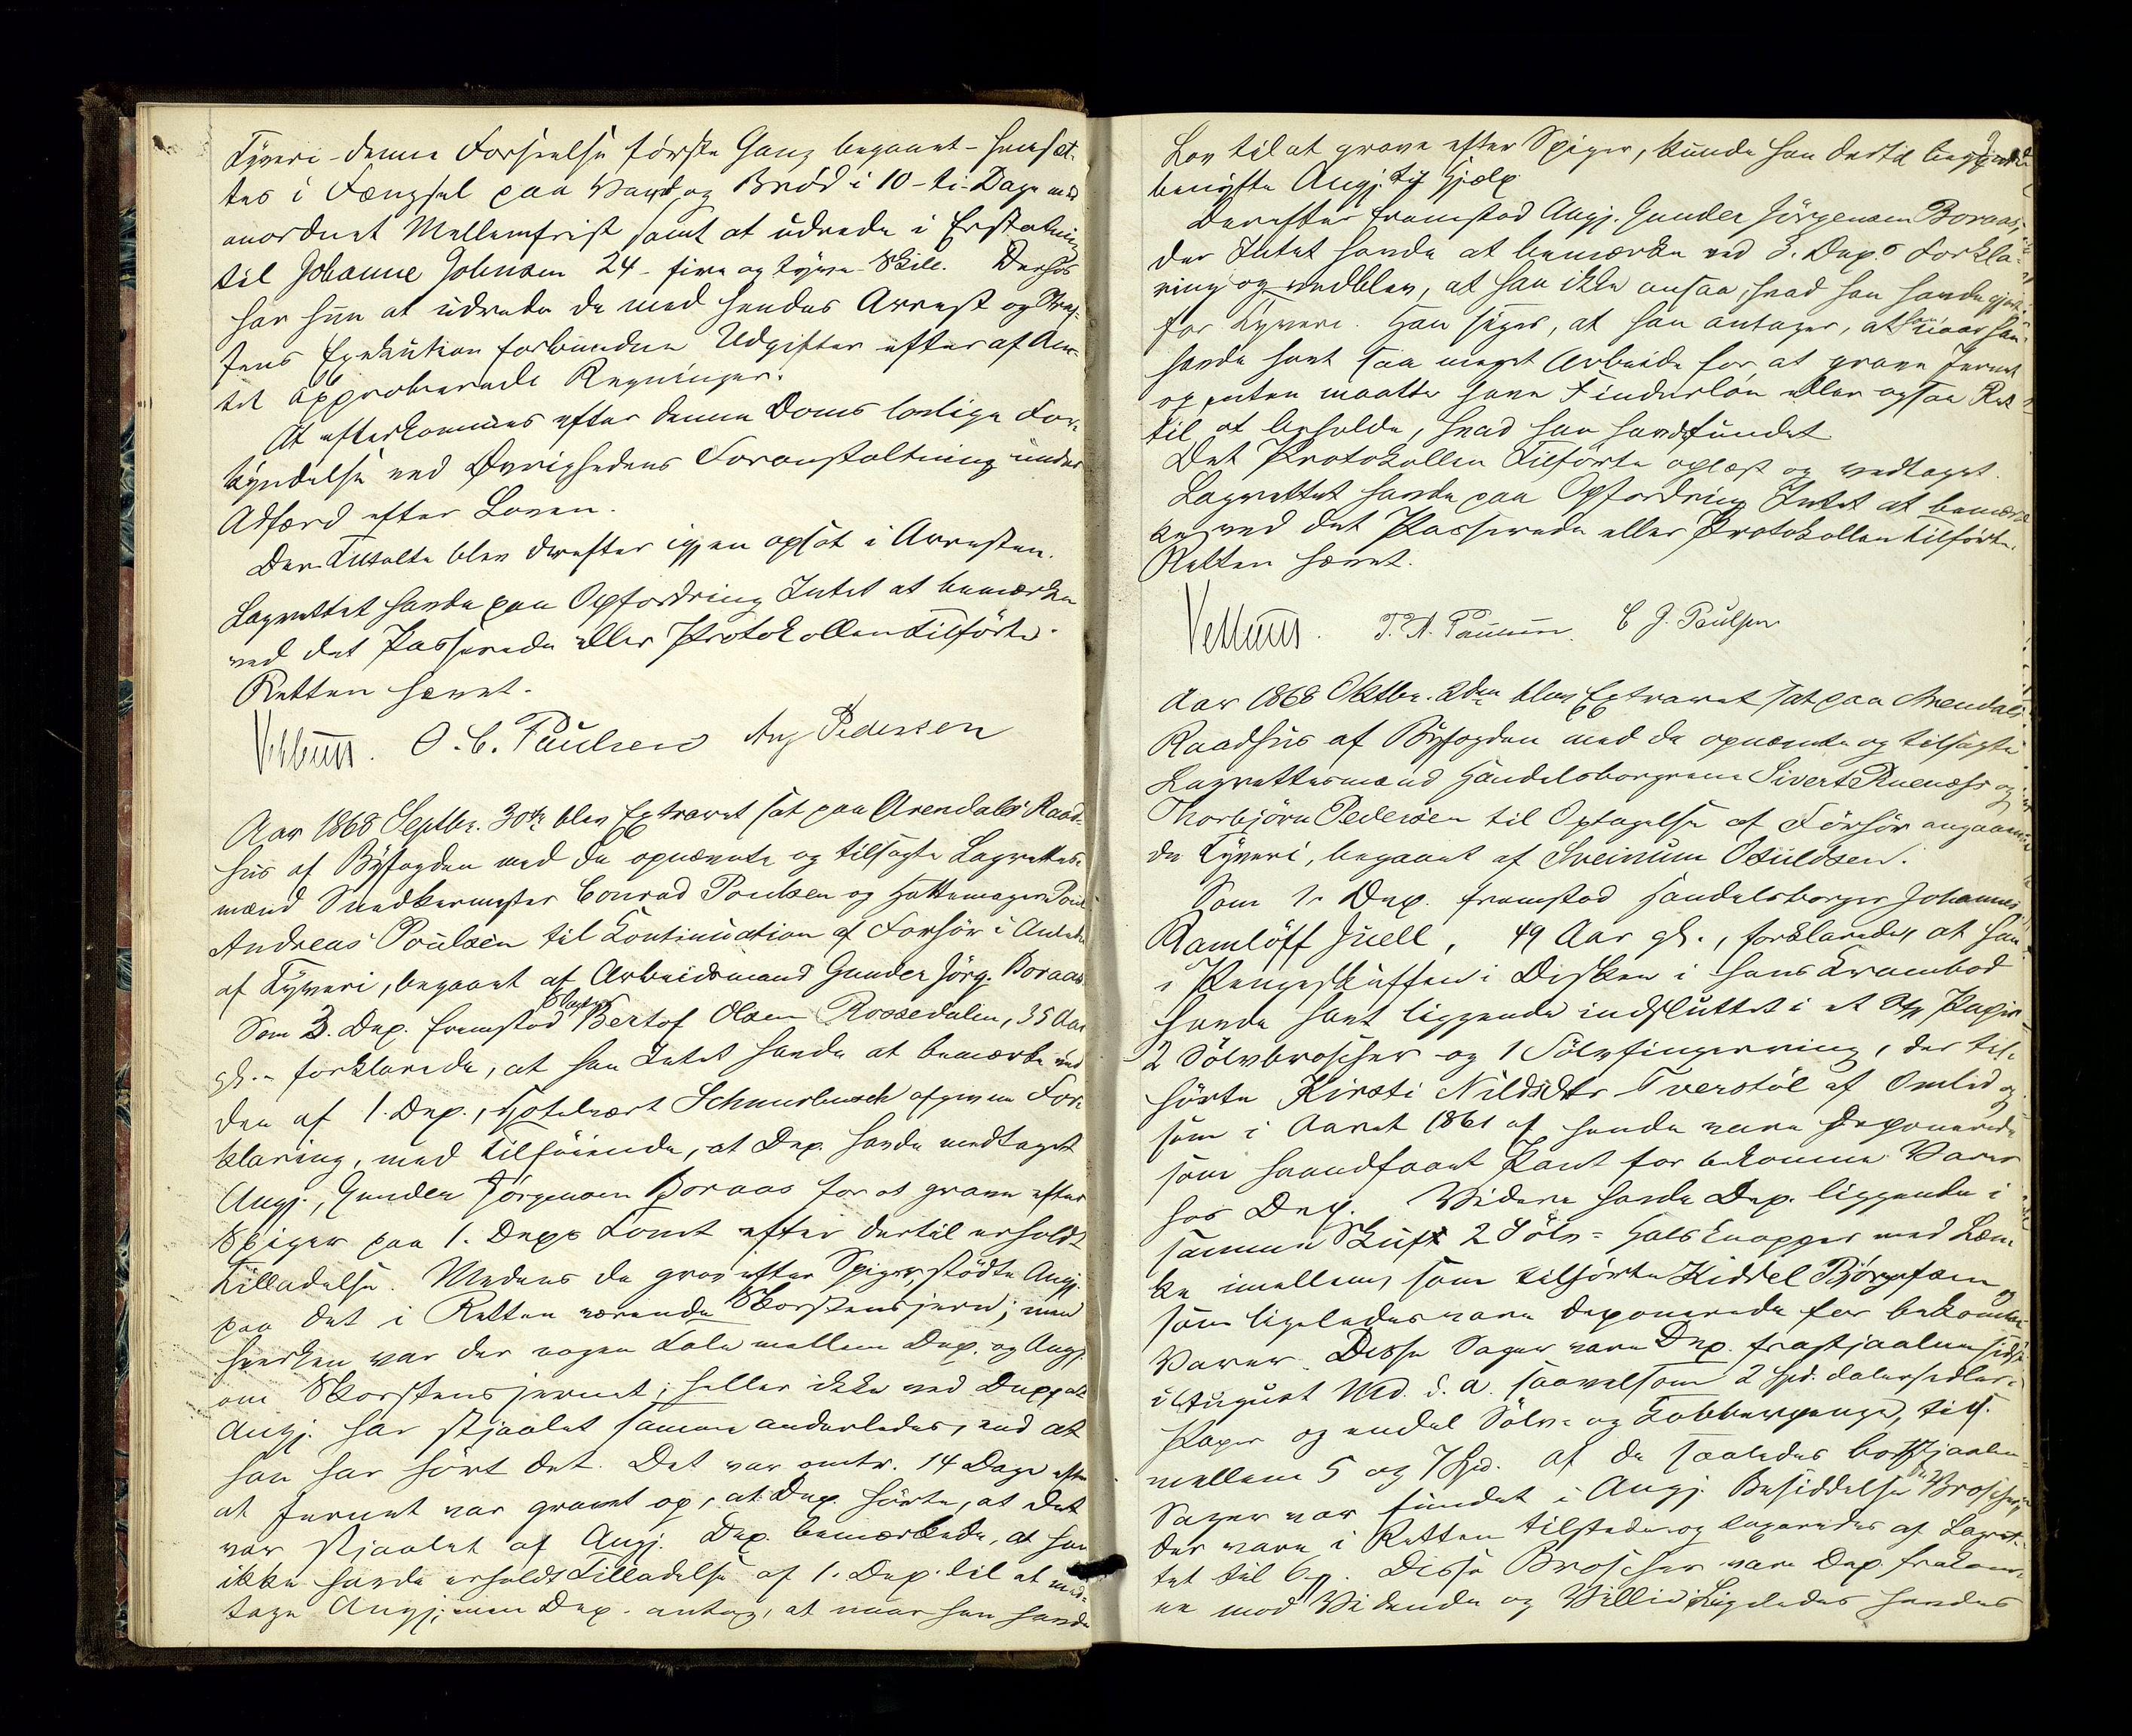 Tyveri – denne Forseelse første Gang begaaet – hensæt-
tes i Fængsel paa Vand og Brød i 10 – ti – Dage med
anordnet Mellemfrist samt at udrede i Erstatning
til Johanne Johnsen 24 – fire og tyve – Skill. Derhos
har hun at udrede de med hendes Arrest og Straf-
fens Exekution forbundne Udgifter efter af Am-
tet approberede Regninger.
At efterkommes efter denne Doms lovlige For-
kyndelse ved Øvrighedens Foranstaltning under
Adfærd efter Loven.
Den Tiltalte blev derefter igjen opsat i Arresten.
Lagrettet havde paa Opfordring Intet at bemærke
ved det Passerede eller Protokollen Tilførte.
Retten hævet.
O. C. Paulsen Aug Pedersen
Aar 1868 Septbr. 30te blev Extraret sat paa Arendals Raad-
hus af Byfogden med de opnævnte og tilsagte Lagrettes-
mænd Snedkermester Conrad Poulsen og Hattemager Poul
Andreas Poulsen til Kontinuation af Forhør i Anledn.
af Tyveri, begaaet af Arbeidsmand Gunder Jörg. Boraas.
Som 3. Dep. fremstod Bertof Olsen Rossedalen, 35 Aar
gl. – forklarede, at han Intet havde at bemærke ved
den af 1. Dep., Hotelvært Schnurbusch afgivne For-
klaring, med Tilføiende, at Dep. havde medtaget
Angj., Gunder Jörgensen Boraas for at grave efter
Spiger paa 1. Deps Tomt efter dertil erholdt
Tilladelse. Medens de grov efter Spiger, stødte Angj.
paa det i Retten værende Skorstensjern; men
hverken var der nogen Tale mellem Dep. og Angj.
om Skorstensjernet; heller ikke ved Dep. at
Angj. har stjaalet samme anderledes, end at
han har hørt det. Det var omtr. 14 Dage efter
at Jernet var gravet op, at Dep. hørte, at det
var stjaalet af Angj. Dep. bemærkede, at han
ikke havde erholdt Tilladelse af 1. Dep. til at med-
tage Angj.; men Dep. antog, at naar han havde
Lov til at grave efter Spiger, kunde han dertil
benytte Angj. til Hjælp.
Derefter fremstod Angj. Gunder Jörgensen Boraas,
der Intet havde at bemærke ved 3. Dep.s Forkla-
ring og vedblev, at han ikke ansaa, hvad han havde gjort
for Tyveri. Han siger, at han antager, at han, naar han
havde havt saa meget Arbeide for at grave Jernet
op, enten maatte have Findeløn eller ogsaa Ret
til at beholde, hvad han havde fundet
Det Protokollen Tilførte oplæst og vedtaget.
Lagrettet havde paa Opfordring Intet at bemær-
ke ved det Passerede eller Protokollen tilførte.
Retten hævet.
C J. Paulsen
Aar 1868 Oktbr. 2den blev Extraret sat paa Arendals
Raadhus af Byfogden med de opnævnte og tilsagte
Lagrettesmænd Handelsborgerne Sivert Ruenæss og
Thorbjörn Pedersen til Optagelse af Forhør angaaen-
de Tyveri, begaaet af Sveinum Osuldsen.
Som 1. Dep. fremstod Handelsborger Johannes
Ramlöff Juell, 49 Aar gl., forklarede, at han
i Pengeskuffen i Disken i hans Krambod
havde havt liggende indsluttet i et Stk Papir
2 Sölvbroscher og 1 Sölvfingerring, der til-
hörte Kirsti Nilsdtr Tverstöl af Omlid og
som i Aaret 1861 af hende vare deponerede
som haandfaaet Pant for bekomne Varer
hos Dep. Videre havde Dep. liggende i
samme Skuf 2 Sölv-Halsknapper med Læn-
ke imellem, som tilhörte Kiddel Björgesen og
som ligeledes vare deponerede for bekomne
Varer. Disse Sager vare Dep. frastjaalne sidst
i August Md. d. A. saavelsom 2 Spd. dalersedler i
Papir og endel Sölv- og Kobberpenge, tils.
mellem 5 og 7 Spd. Af de saaledes bortstjaalne
Sager var fundet i Angj. Besiddelse de Broscher,
der vare i Retten tilstede og bleve af Lagret-
tet til 6 . Disse Broscher vare Dep. frakom-
ne mod Vidende og Villie. Ligeledes havdes